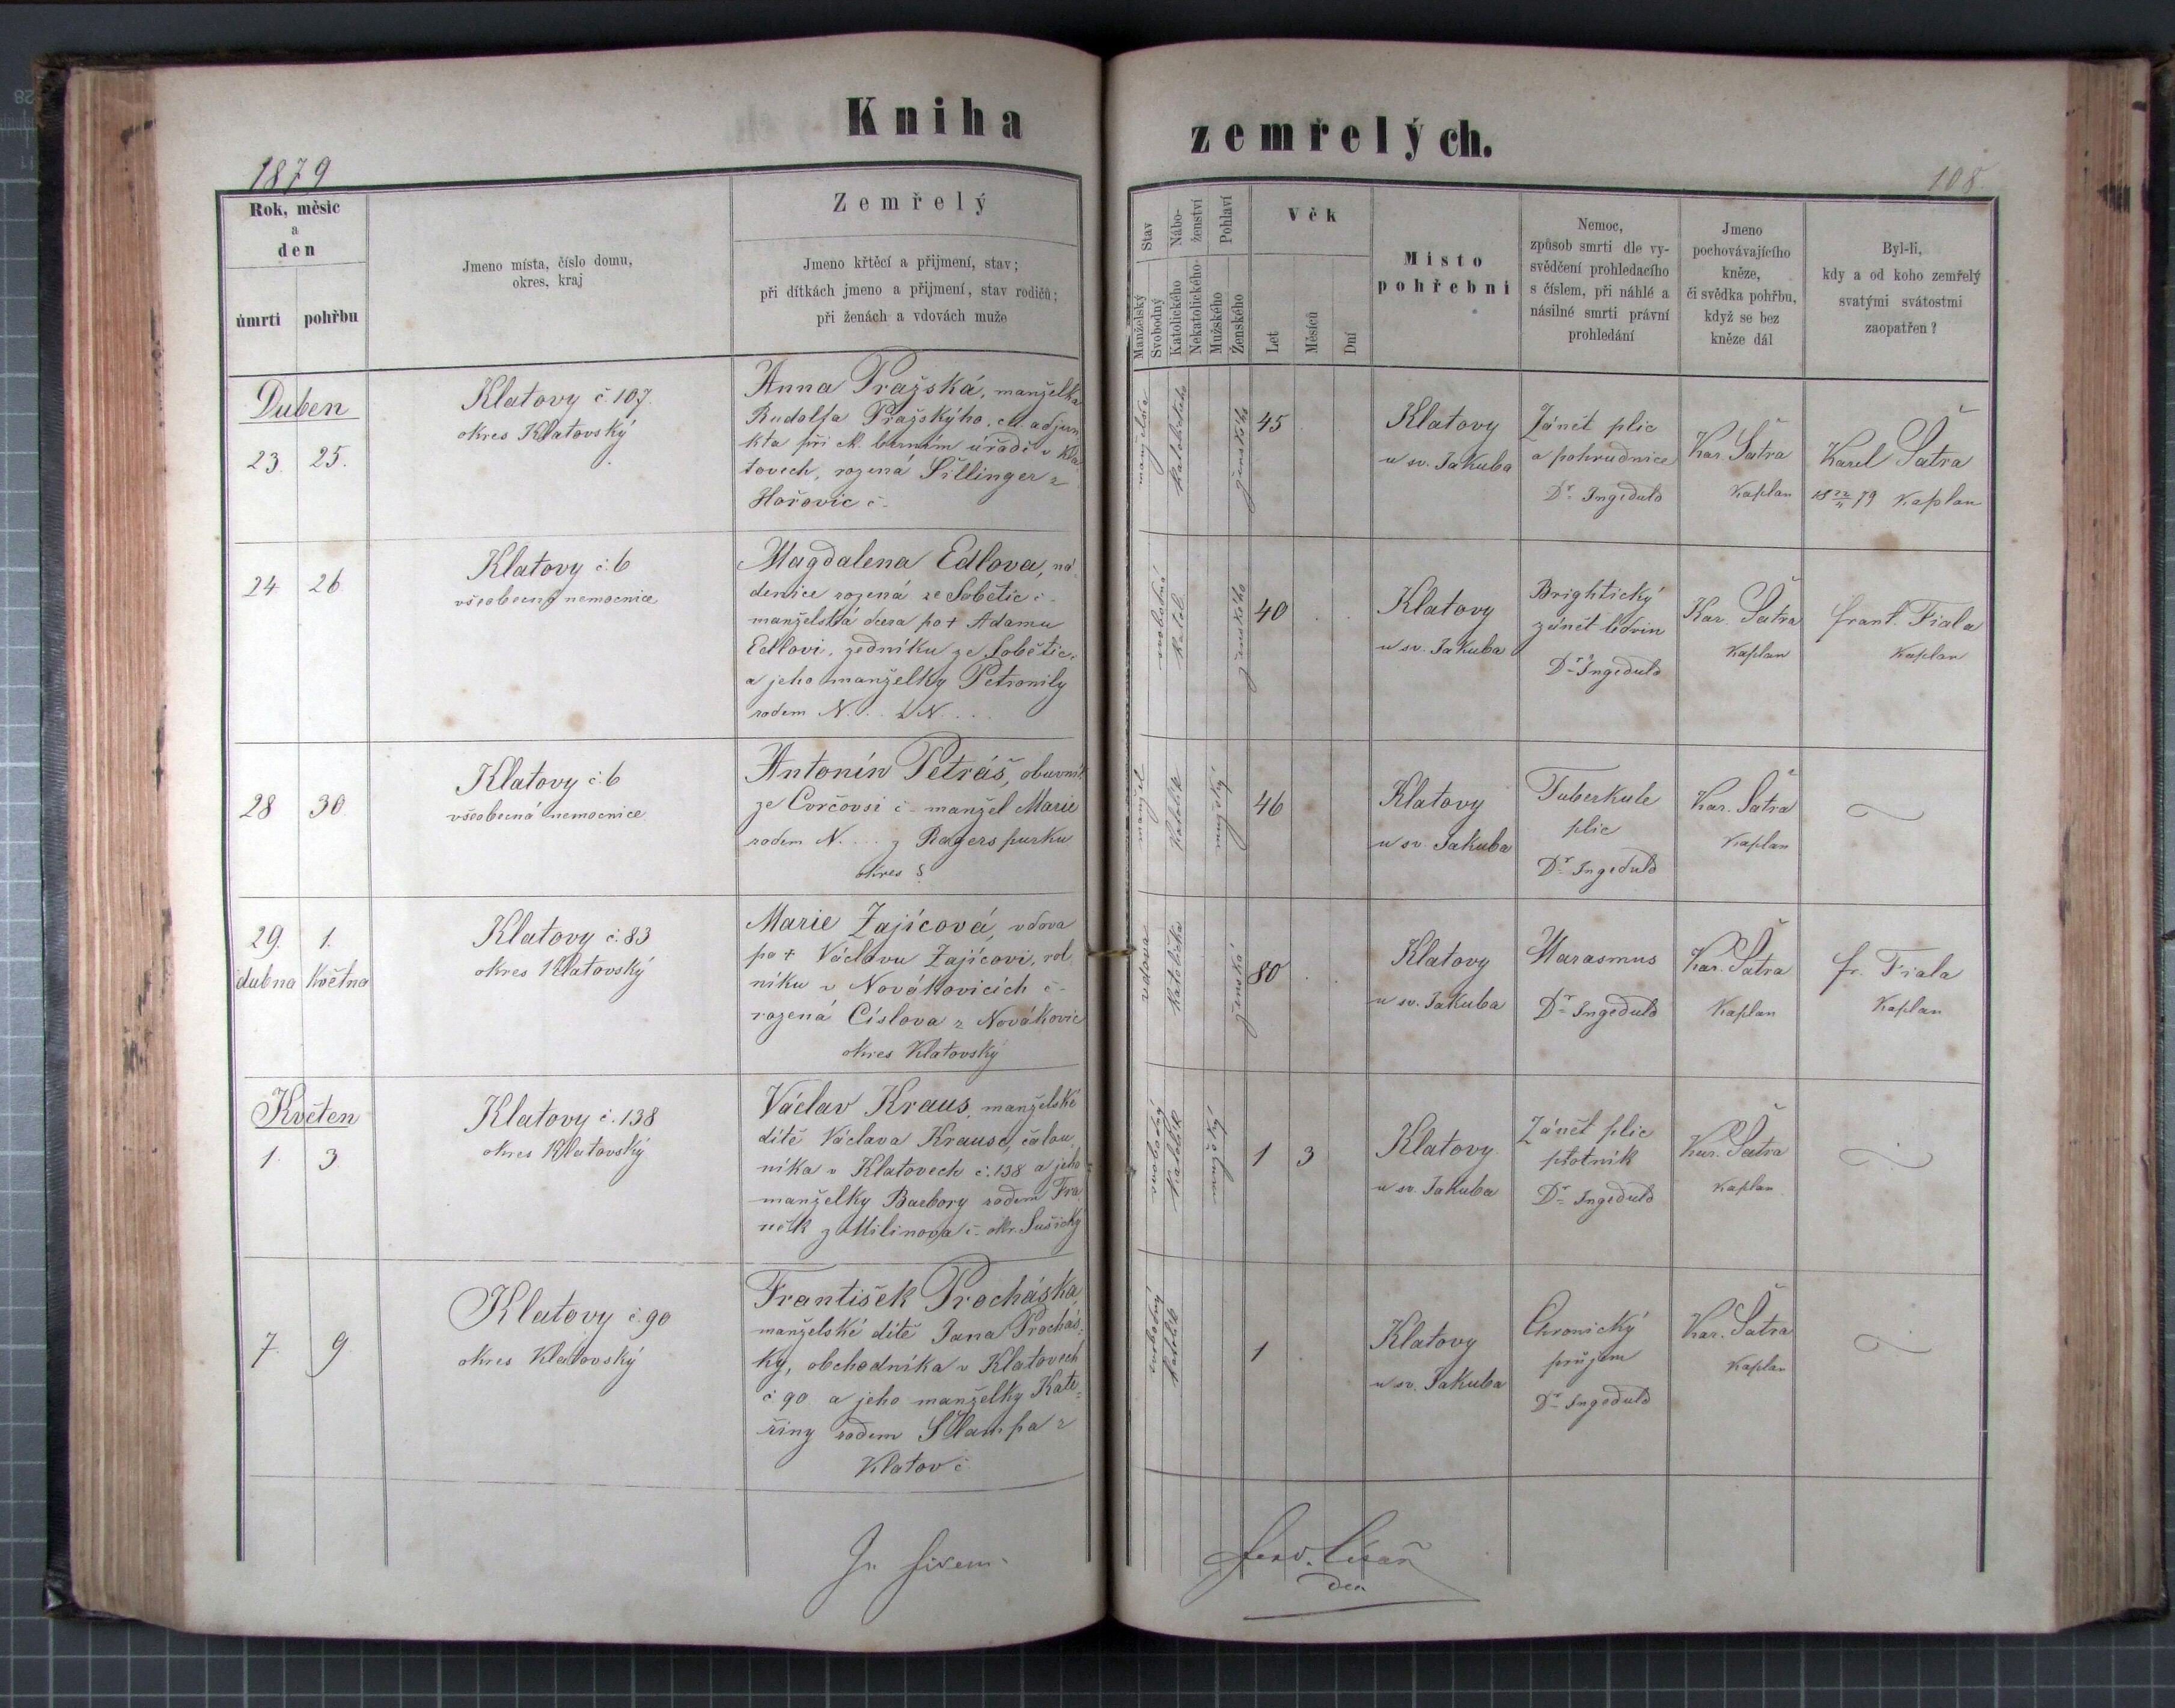 Kniha
zemřelých.
1879
108.
Rok, měsíc
a
den
úmrti
pohřbu
Jmeno místa, číslo domu,
okres, kraj
Zemřelý
Jmeno křtěcí a přijmení, stav;
při dítkách jmeno a přijmení, stav rodičů;
při ženách a vdovách muže
Stav
Manželský
Svobodný
Nábo-
ženství
Katolického
Nekatolického
Pohlaví
Mužského
Ženského
Věk
Let
Měsíců
Dní
Místo
pohřební
Nemoc,
způsob smrti dle vy-
svědčení prohledacího
s číslem, při náhlé a
násilné smrti právní
prohledání
Jmeno
pochovávajícího
kněze,
či svědka pohřbu,
když se bez
kněze dál
Byl-li,
kdy a od koho zemřelý
svatými svátostmi
zaopatřen?
Duben
23. 25.
Klatovy č 107.
okres Klatovský
Anna Pražská, manželka
Rudolfa Pražskýho, ck. adjun
kta při ck. berním úřadě v Kla
tovech, rozená Šillinger z
Hořovic č -
manželská
katolického
ženského
45
Klatovy
u sv. Jakuba
Zánět plic
a pohrudnice
Dr. Ingeduld
Kar. Šatra
Kaplan
Karel Šatra
18 22/4 79 Kaplan
24 26
Klatovy č. 6
všeobecná nemocnice
Magdalena Edlova, ná
denice rozená ze Sobětic č -
manželská dcera po † Adamu
Edlovi, zedníku ze Sobětic
a jeho manželky Petronily
rodem N. . . z N . . .
svobodná
katol.
ženského
40
Klatovy
u sv. Jakuba
Brightický
zánět ledvin
Dr. Ingeduld
Kar. Šatra
Kaplan
Frant. Fiala
Kaplan
28 30
Klatovy č. 6
všeobecná nemocnice
Antonín Petráš, obuvník
ze Corčovsi č - manžel Marie
rodem N. . . . z Regerspurku
okres
manžel
Katolík
mužský
46
Klatovy
u sv. Jakuba
Tuberkule
plic
Dr. Ingeduld
Kar. Šatra
Kaplan
29. 1.
dubna Května
Klatovy č. 83
okres Klatovský
Marie Zajícová, vdova
po † Václavu Zajícovi, rol
níku v Novákovicích č -
rozená Císlova z Novákovic
okres Klatovský
vdova
Katolička
ženská
80
Klatovy
u sv. Jakuba
Marasmus
Dr. Ingeduld
Kar. Šatra
Kaplan
Fr. Fiala
Kaplan
Květen
1. 3
Klatovy č. 138
okres Klatovský
Václav Kraus, manželské
dítě Václava Krause, čalou
níka v Klatovech č. 138 a jeho
manželky Barbory rodem Fra
něk z Milinova č - okr. Sušický
svobodný
Katolík
mužský
1 3
Klatovy
u sv. Jakuba
Zánět plic
Dr. Ingeduld
Kar. Šatra
Kaplan
7. 9.
Klatovy č. 90
okres Klatovský
František Procháska
manželské dítě Jana Prochás-
ky, obchodníka v Klatovech
č. 90 a jeho manželky Kate-
řiny rodem Šlampa z
Klatov č.
svobodný
katolík
1
Klatovy
u sv. Jakuba
Chronický
průjem
Dr. Ingeduld
Kar. Šatra
Kaplan